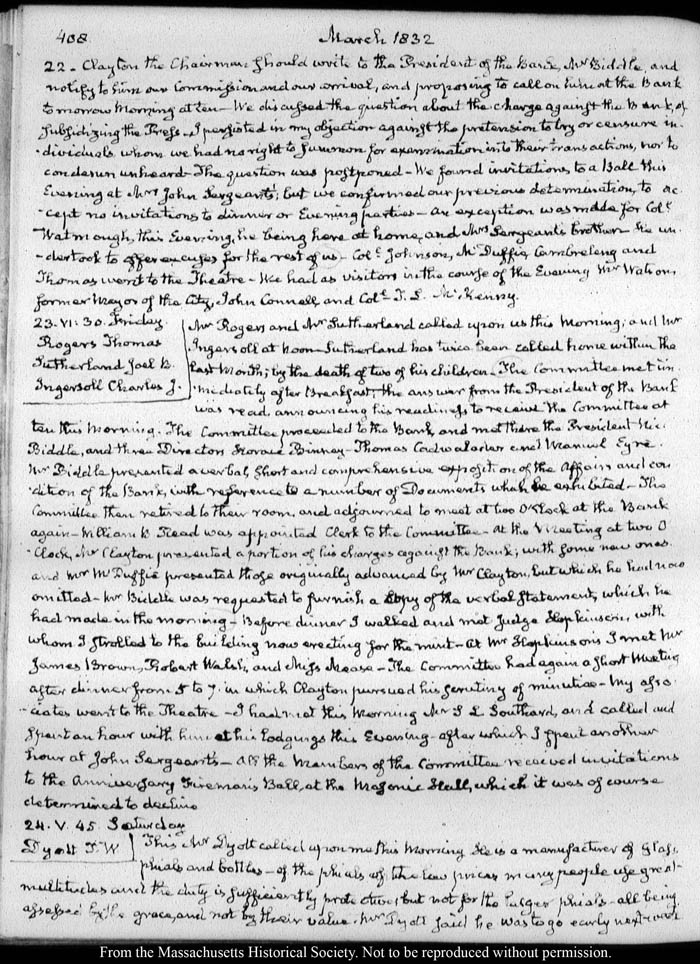 408 March 1832
22. Clayton the Chairman should write to the President of the Bank, Mr Biddle, and
notify to him our Commission and our arrival, and proposing to call on him at the Bank
tomorrow Morning at ten — We discussed the question about the charge against the Bank, of
subsidizing the Press — I persisted in my objection against the pretension to try or censure in-
-dividuals whom we had no right to summon for examination into their transactions, nor to
condemn unheard. The question was postponed — We found invitations to a Ball this
Evening at Mrs John Sergeant's; but we confirmed our previous determination, to ac-
-cept no invitations to dinner or Evening parties — An exception was made for Coll
Watmough, this Evening, he being here at home, and Mrs Sergeant's brother — He un-
-dertook to offer excuses for the rest of us — Coll Johnson, McDuffie, Cambreleng and
Thomas went to the Theatre — We had as visitors in the course of the Evening Mr Watson,
former Mayor of the City, John Connell, and Coll T. L. McKenny.
23. VI: 30. Friday.
Rogers Thomas
Sutherland Joel B.
Ingersoll Charles J.
Mr Rogers and Mr Sutherland called upon us this Morning; and Mr
Ingersoll at noon — Sutherland has twice been called home within the
last Month; by the death of two of his children — The Committee met im-
-mediately after Breakfast; the answer from the President of the Bank
was read, announcing his readiness to receive the Committee at
ten this Morning. The Committee proceeded to the Bank, and met there the President Nic:
Biddle, and three Directors Horace Binney — Thomas Cadwalader and Manuel Eyre.
Mr Biddle presented a verbal, short and comprehensive exposition of the Affairs and con-
-dition of the Bank, with reference to a number of Documents which he exhibited — The
Committee then retired to their room, and adjourned to meet at two O'Clock at the Bank
again — William B. Read was appointed Clerk to the Committee — At the Meeting at two O
-Clock, Mr Clayton presented a portion of his charges against the Bank, with some new ones.
and Mr McDuffie presented those originally advanced by Mr Clayton, but which he had now
omitted — Mr Biddle was requested to furnish a Copy of the verbal statement, which he
had made in the morning — Before dinner I walked and met Judge Hopkinson, with
whom I strolled to the building now erecting for the mint — At Mr Hopkinson's I met Mr
James Brown, Robert Walsh, and Miss Mease — The Committee had again a short Meeting
after dinner from 5 to 7. in which Clayton pursued his scrutiny of minutiae — My asso-
-ciates went to the Theatre — I had met this Morning Mr S L Southard, and called and
spent an hour with him at his lodgings this Evening — after which I spent another
hour at John Sergeant's — All the Members of the Committee received invitations
to the Anniversary Fireman's Ball, at the Masonic Hall, which it was of course
determined to decline
24. V. 45. Saturday
Dyott T. W
This Mr Dyott called upon me this Morning He is a manufacturer of glass,
phials and bottles — of the phials of the low prices many people use great
multitudes and the duty is sufficiently protective; but not for the larger phials — all being
assessed by the groce, and not by their value. Mr Dyott said he was to go early next week
From the Massachusetts Historical Society. Not to be reproduced without permission.